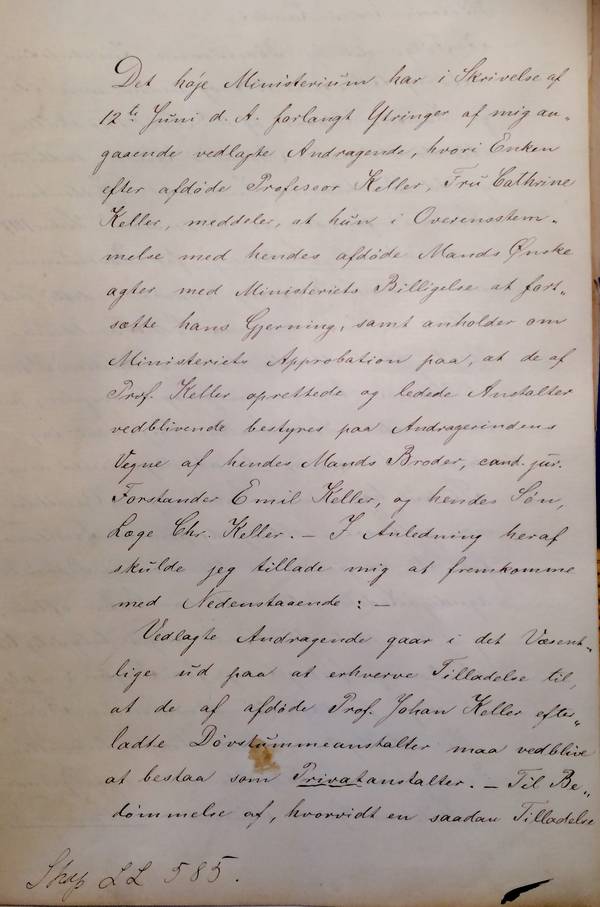 Det høje Ministerium har i Skrivelse af
12te Juni d. A. forlangt Ytringer af mig an-
gaaende vedlagte Andragende, hvori Enken
efter afdøde Professor Keller, Fru Cathrine
Keller, meddeler, at hun i Overensstem-
melse med hendes afdøde Mands Ønske
agter med Ministeriets Billigelse at fort-
sætte hans Gjerning, samt anholder om
Ministeriets Approbation paa, at de af
Prof. Keller oprettede og ledede Anstalter
vedblivende bestyres paa Andragerindens
Vegne af hendes Mands Broder, cand. jur.
Forstander Emil Keller, og hendes Søn,
Læge Chr. Keller. – I Anledning heraf
skulde jeg tillade mig at fremkomme
med Nedenstaaende : –
Vedlagte Andragende gaar i det Væsent-
lige ud paa at erhverve Tilladelse til,
at de af afdøde Prof. Johan Keller efter-
ladte Døvstummeanstalter maa vedblive
at bestaa som Privatanstalter. – Til Be-
dømmelse af, hvorvidt en saadan Tilladelse
Skap LL 585.